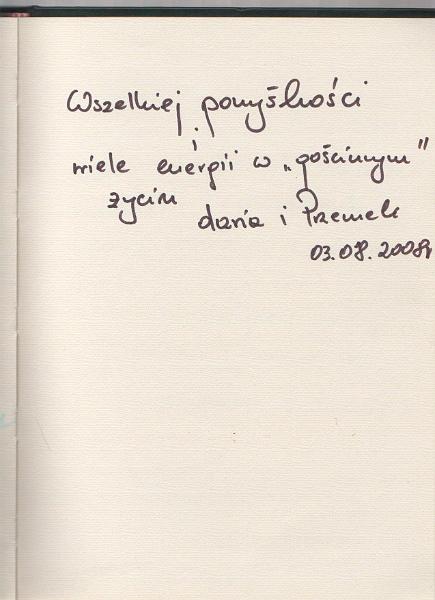 Wszelkiej pomyślności
i
wiele energii w „gościnnym”
życiu
daria i Przemek
03.08.2008r